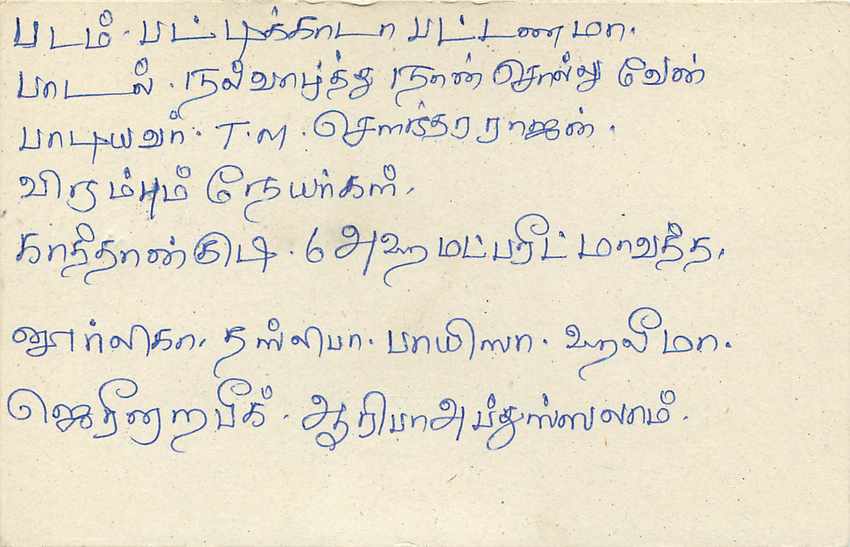 படம். பட்டிக்காடா பட்டணமா.
பாடல். நல்வாழ்த்து நான் சொல்லுவேன்
பாடியவர். T.M. சௌந்தரராஜன்.
விரும்பும் நேயர்கள்.
காத்தான்குடி. 6 அஹமட் பரீட் மாவத்த,
நூர்லிகா, நஸ்லிபா. பாயிஸா. ஹலீமா.
ஜெரீனறபீக். ஆரிபா அப்துஸ்ஸலாம்.